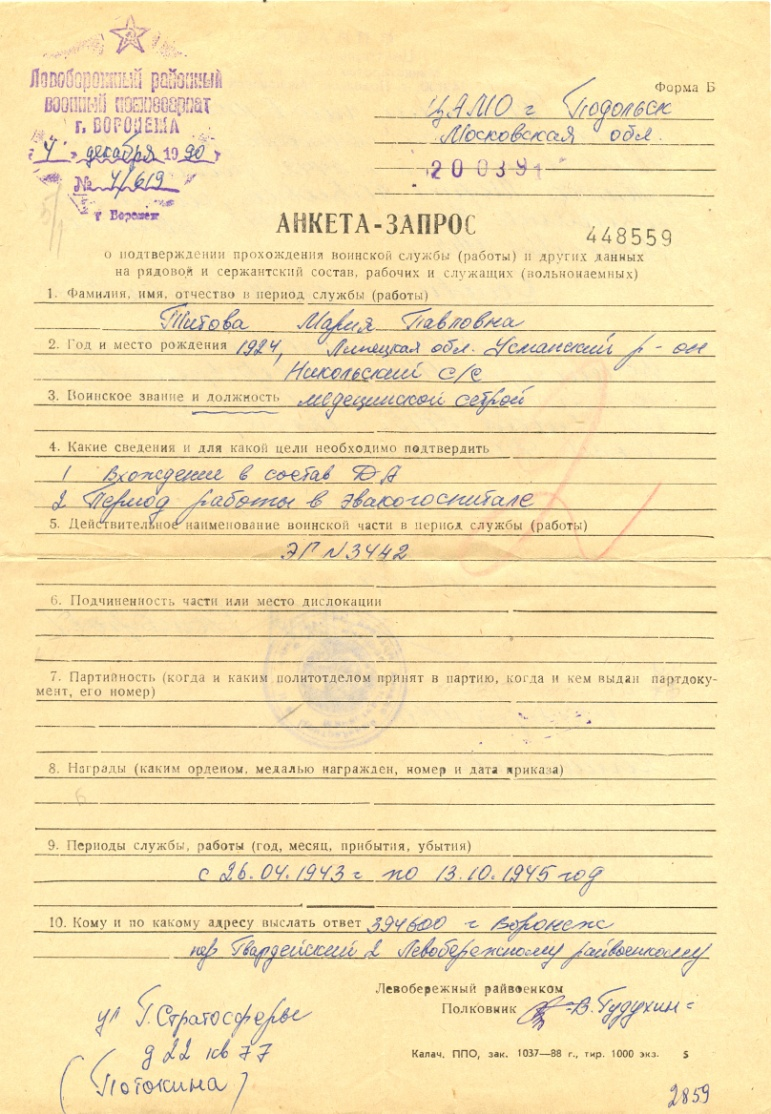 Левобережный районный
военный комиссариат
г. ВОРОНЕЖА
"4" декабря 1990
№ 4/619
г Воронеж
Форма Б
ЦАМО г Подольск
Московская обл.
200391
АНКЕТА-ЗАПРОС
448559
о подтверждении прохождения воинской службы (работы) и других данных
на рядовой и сержантский состав, рабочих и служащих (вольнонаемных)
1. Фамилия, имя, отчество в период службы (работы)
Титова Мария Павловна
2. Год и место рождения 1924, Липецкая обл. Усманский р-он
Никольский с/с
3. Воинское звание и должность медецинской сетрой
4. Какие сведения и для какой цели необходимо подтвердить
1 Вхождение в состав ДА
2 Период работы в эвакогоспитале
5. Действительное наименование воинской части в период службы (работы)
ЭГ N3442
6. Подчиненность части или место дислокации
7. Партийность (когда и каким политотделом принят в партию, когда и кем выдан партдоку-
мент, его номер)
8. Награды (каким орденом, медалью награжден, номер и дата приказа)
6
9. Периоды службы, работы (год, месяц, прибытия, убытия)
с 26.04.1943 г по 13.10.1945 год
10. Кому и по какому адресу выслать ответ 394600 г Воронеж
пер Гвардейский 2 Левобережному райвоенкому
Левобережный райвоенком
Полковник В. Гудухин
ул Г. Стратосферы
д 22 кв 77
(Потокина)
Калач. ППО, зак. 1037—88 г., тир. 1000 экз. 5
2859